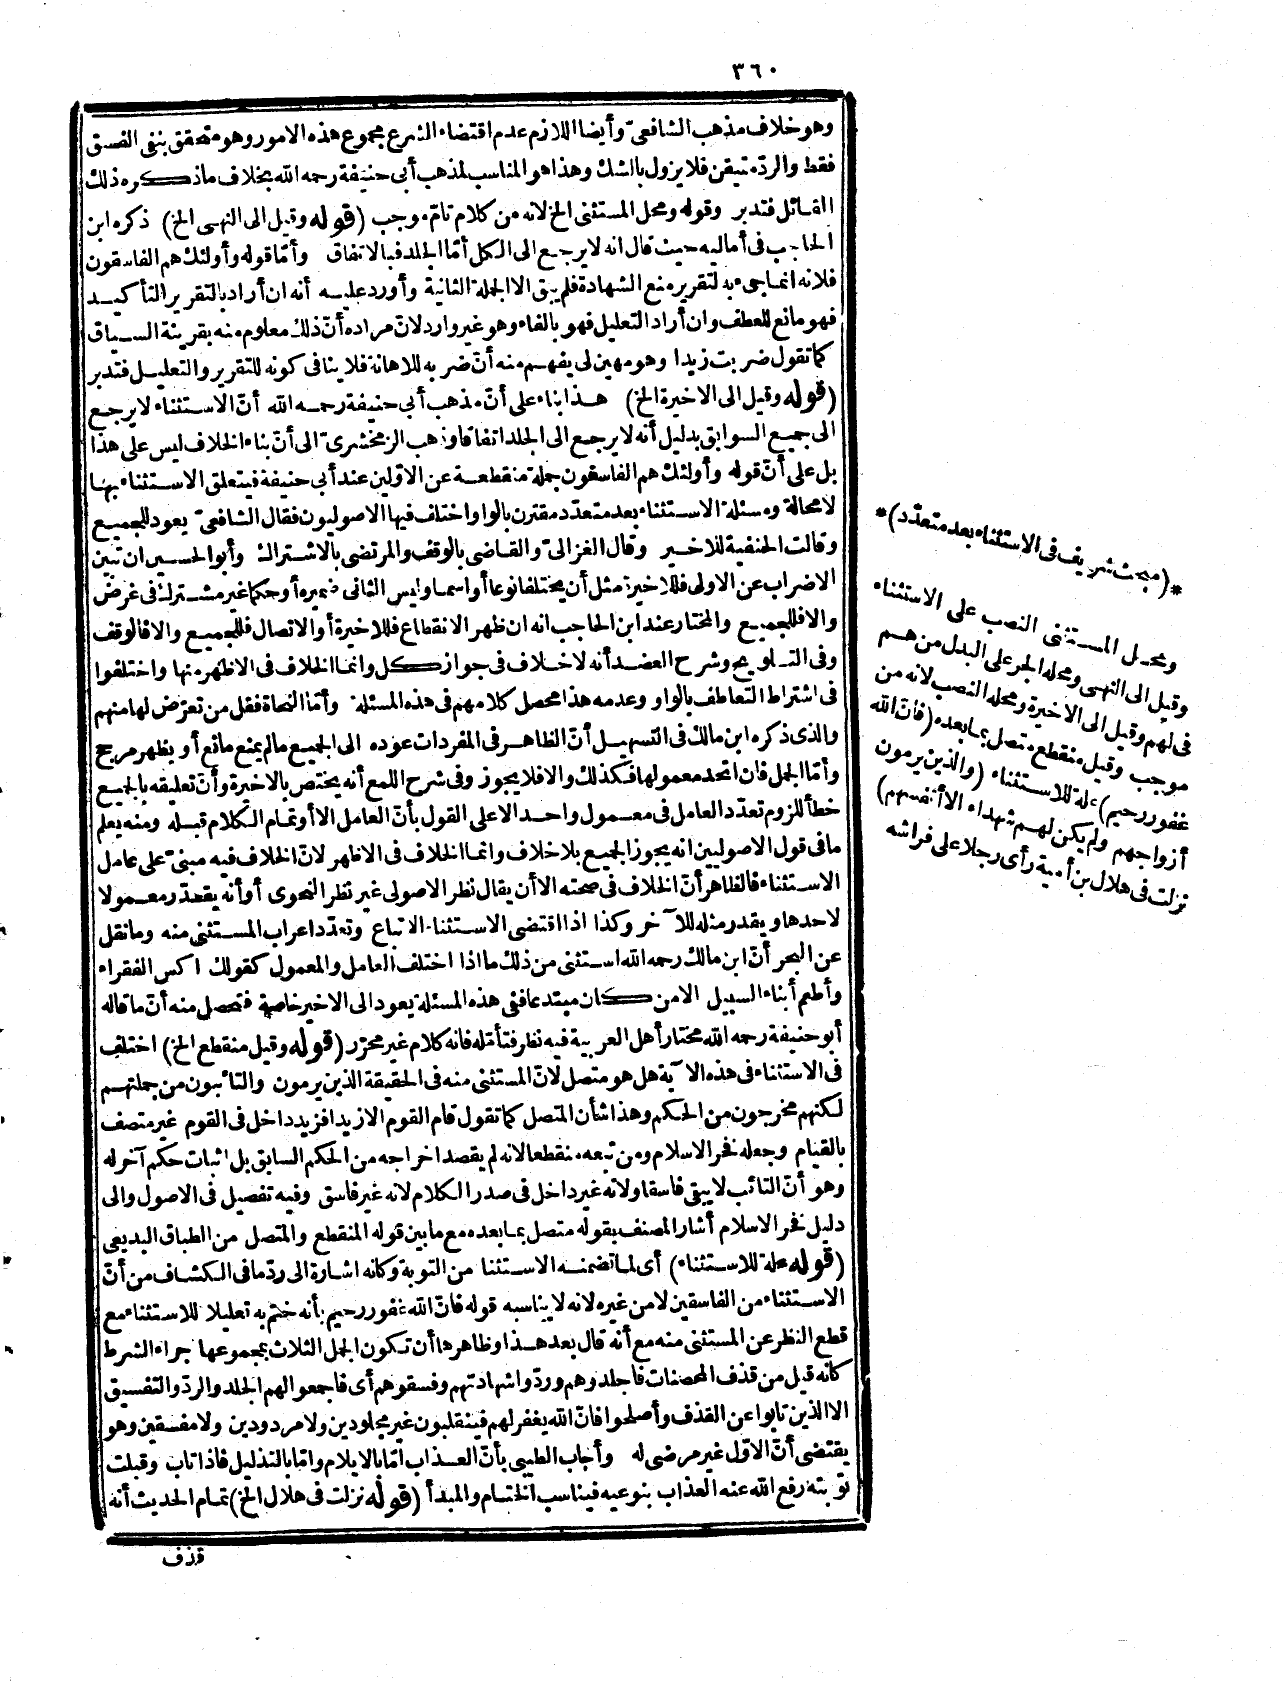 ٣٦٠
وهو خلاف مذهب الشافعيّ وأيضا اللازم عدم اقتضاء الشرع مجموع هذه الامور وهو متحقق بنفي الفسق
فقط والردّ متيقن فلا يزول بالشك وهذا هو المناسب لمذهب أبي حنيفة رحمه الله بخلاف ما ذكره ذلك
القائل فتدبر وقوله ومحل المستثنى الخ لانه من كلام تامّ موجب (قوله وقيل الى النهي الخ) ذكره ابن
الحاجب في أماليه حيث قال انه لا يرجع الى الكل أمّا الجلد فبالاتفاق وأمّا قوله وأولئك هم الفاسقون
فلانه انما جيء به لتقرير منع الشهادة فلم يبق الا الجملة الثانية وأورد عليه أنه ان أراد بالتقرير التأكيد
فهو مانع للعطف وان أراد التعليل فهو بالفاء وهو غير وارد لانّ مراده أنّ ذلك معلوم منه بقرينة السياق
كما تقول ضربت زيدا وهو مهين لي يفهم منه أنّ ضربه للاهانة فلا ينافي كونه للتقرير والتعليل فتدبر
(قوله وقيل الى الاخيرة الخ) هذا بناء على أنّ مذهب أبي حنيفة رحمه الله أنّ الاستثناء لا يرجع
الى جميع السوابق بدليل أنه لا يرجع الى الجلد اتفاقا وذهب الزمخشريّ الى أنّ بناء الخلاف ليس على هذا
بل على أنّ قوله وأولئك هم الفاسقون جملة منقطعة عن الاوّلين عند أبي حنيفة فيتعلق الاستثناء بها
لا محالة ومسئلة الاستثناء بعد متعدد مقترن بالواو اختلف فيها الاصوليون فقال الشافعيّ يعود للجميع
وقالت الحنفية للاخير وقال الغزاليّ والقاضي بالوقف والمرتضى بالاشتراك وأبو الحسين ان تبين
الاضراب عن الاولى فللاخيرة مثل أن يختلفا نوعا أو اسما وليس الثاني ضميره أو حكما غير مشترك في غرض
والا فللجميع والمختار عند ابن الحاجب انه ان ظهر الانقطاع فللاخيرة أو الاتصال فللجميع والا فالوقف
وفي التلويح وشرح العضد أنه لا خلاف في جواز كل وانما الخلاف في الاظهر منها واختلفوا
في اشتراط التعاطف بالواو وعدمه هذا محصل كلامهم في هذه المسئلة وأمّا النحاة فقل من تعرّض لها منهم
والذي ذكره ابن مالك في التسهيل أنّ الظاهر في المفردات عوده الى الجميع ما لم يمنع مانع أو يظهر مرجح
وأمّا الجمل فان اتحد معمولها فكذلك والا فلا يجوز وفي شرح اللمع أنه يختص بالاخيرة وأنّ تعليقه بالجميع
خطأ للزوم تعدّد العامل في معمول واحد الا على القول بأنّ العامل الا أو تمام الكلام قبله ومنه يعلم
ما في قول الاصوليين انه يجوز الجميع بلا خلاف وانما الخلاف في الاظهر لانّ الخلاف فيه مبنيّ على عامل
الاستثناء فالظاهر أنّ الخلاف في صحته الا أن يقال نظر الاصولي غير نظر النحوي أو أنه يقدّر معمولا
لاحدها ويقدر مثله للآخر وكذا اذا اقتضى الاستثناء الاتباع وتعدّد اعراب المستثنى منه وما نقل
عن البحر أنّ ابن مالك رحمه الله استثنى من ذلك ما اذا اختلف العامل والمعمول كقولك اكس الفقراء
وأطعم أبناء السبيل الا من كان مبتدعا ففي هذه المسئلة يعود الى الاخير خاصة فتحصل منه أنّ ما قاله
أبو حنيفة رحمه الله مختار أهل العربية فيه نظر فتأمّله فانه كلام غير محرّر (قوله وقيل منقطع الخ) اختلف
في الاستثناء في هذه الآية هل هو متصل لانّ المستثنى منه في الحقيقة الذين يرمون والتائبون من جملتهم
لكنهم مخرجون من الحكم وهذا شأن المتصل كما تقول قام القوم الا زيدا فزيد داخل في القوم غير متصف
بالقيام وجعله فخر الاسلام ومن تبعه منقطعا لانه لم يقصد اخراجه من الحكم السابق بل اثبات حكم آخر له
وهو أنّ التائب لا يبقى فاسقا ولانه غير داخل في صدر الكلام لانه غير فاسق وفيه تفصيل في الاصول والى
دليل فخر الاسلام أشار المصنف بقوله متصل بما بعده مع ما بين قوله المنقطع والمتصل من الطباق البديعي
(قوله علة للاستثناء) أي لما تضمنه الاستثنا من التوبة وكانه اشارة الى ردّ ما في الكشاف من أنّ
الاستثناء من الفاسقين لا من غيره لانه لا يناسبه قوله فانّ الله غفور رحيم بأنه ختم به تعليلا للاستثناء مع
قطع النظر عن المستثنى منه مع أنه قال بعد هذا وظاهرها أن تكون الجمل الثلاث بمجموعها جزاء الشرط
كانه قيل من قذف المحصنات فاجلدوهم وردّوا شهادتهم وفسقوهم أي فاجمعوا لهم الجلد والردّ والتفسيق
الا الذين تابوا عن القذف وأصلحوا فانّ الله يغفر لهم فينقلبون غير مجلودين ولا مردودين ولا مفسقين وهو
يقتضي أنّ الاوّل غير مرضي له وأجاب الطيبي بأنّ العذاب امّا بالايلام وامّا بالتذليل فاذا تاب وقبلت
توبته رفع الله عنه العذاب بنوعيه فيناسب الختام والمبدأ (قوله نزلت في هلال الخ) تمام الحديث أنه
قذف
*(مبحث شريف في الاستثناء بعد متعدّد)*
ومحل المستثنى النصب على الاستثناء
وقيل الى النهي ومحله الجر على البدل من هم
في لهم وقيل الى الاخيرة ومحله النصب لانه من
موجب وقيل منقطع متصل بما بعده (فانّ الله
غفور رحيم) علة للاستثناء (والذين يرمون
أزواجهم ولم يكن لهم شهداء الا أنفسهم)
نزلت في هلال بن أمية رأى رجلا على فراشه